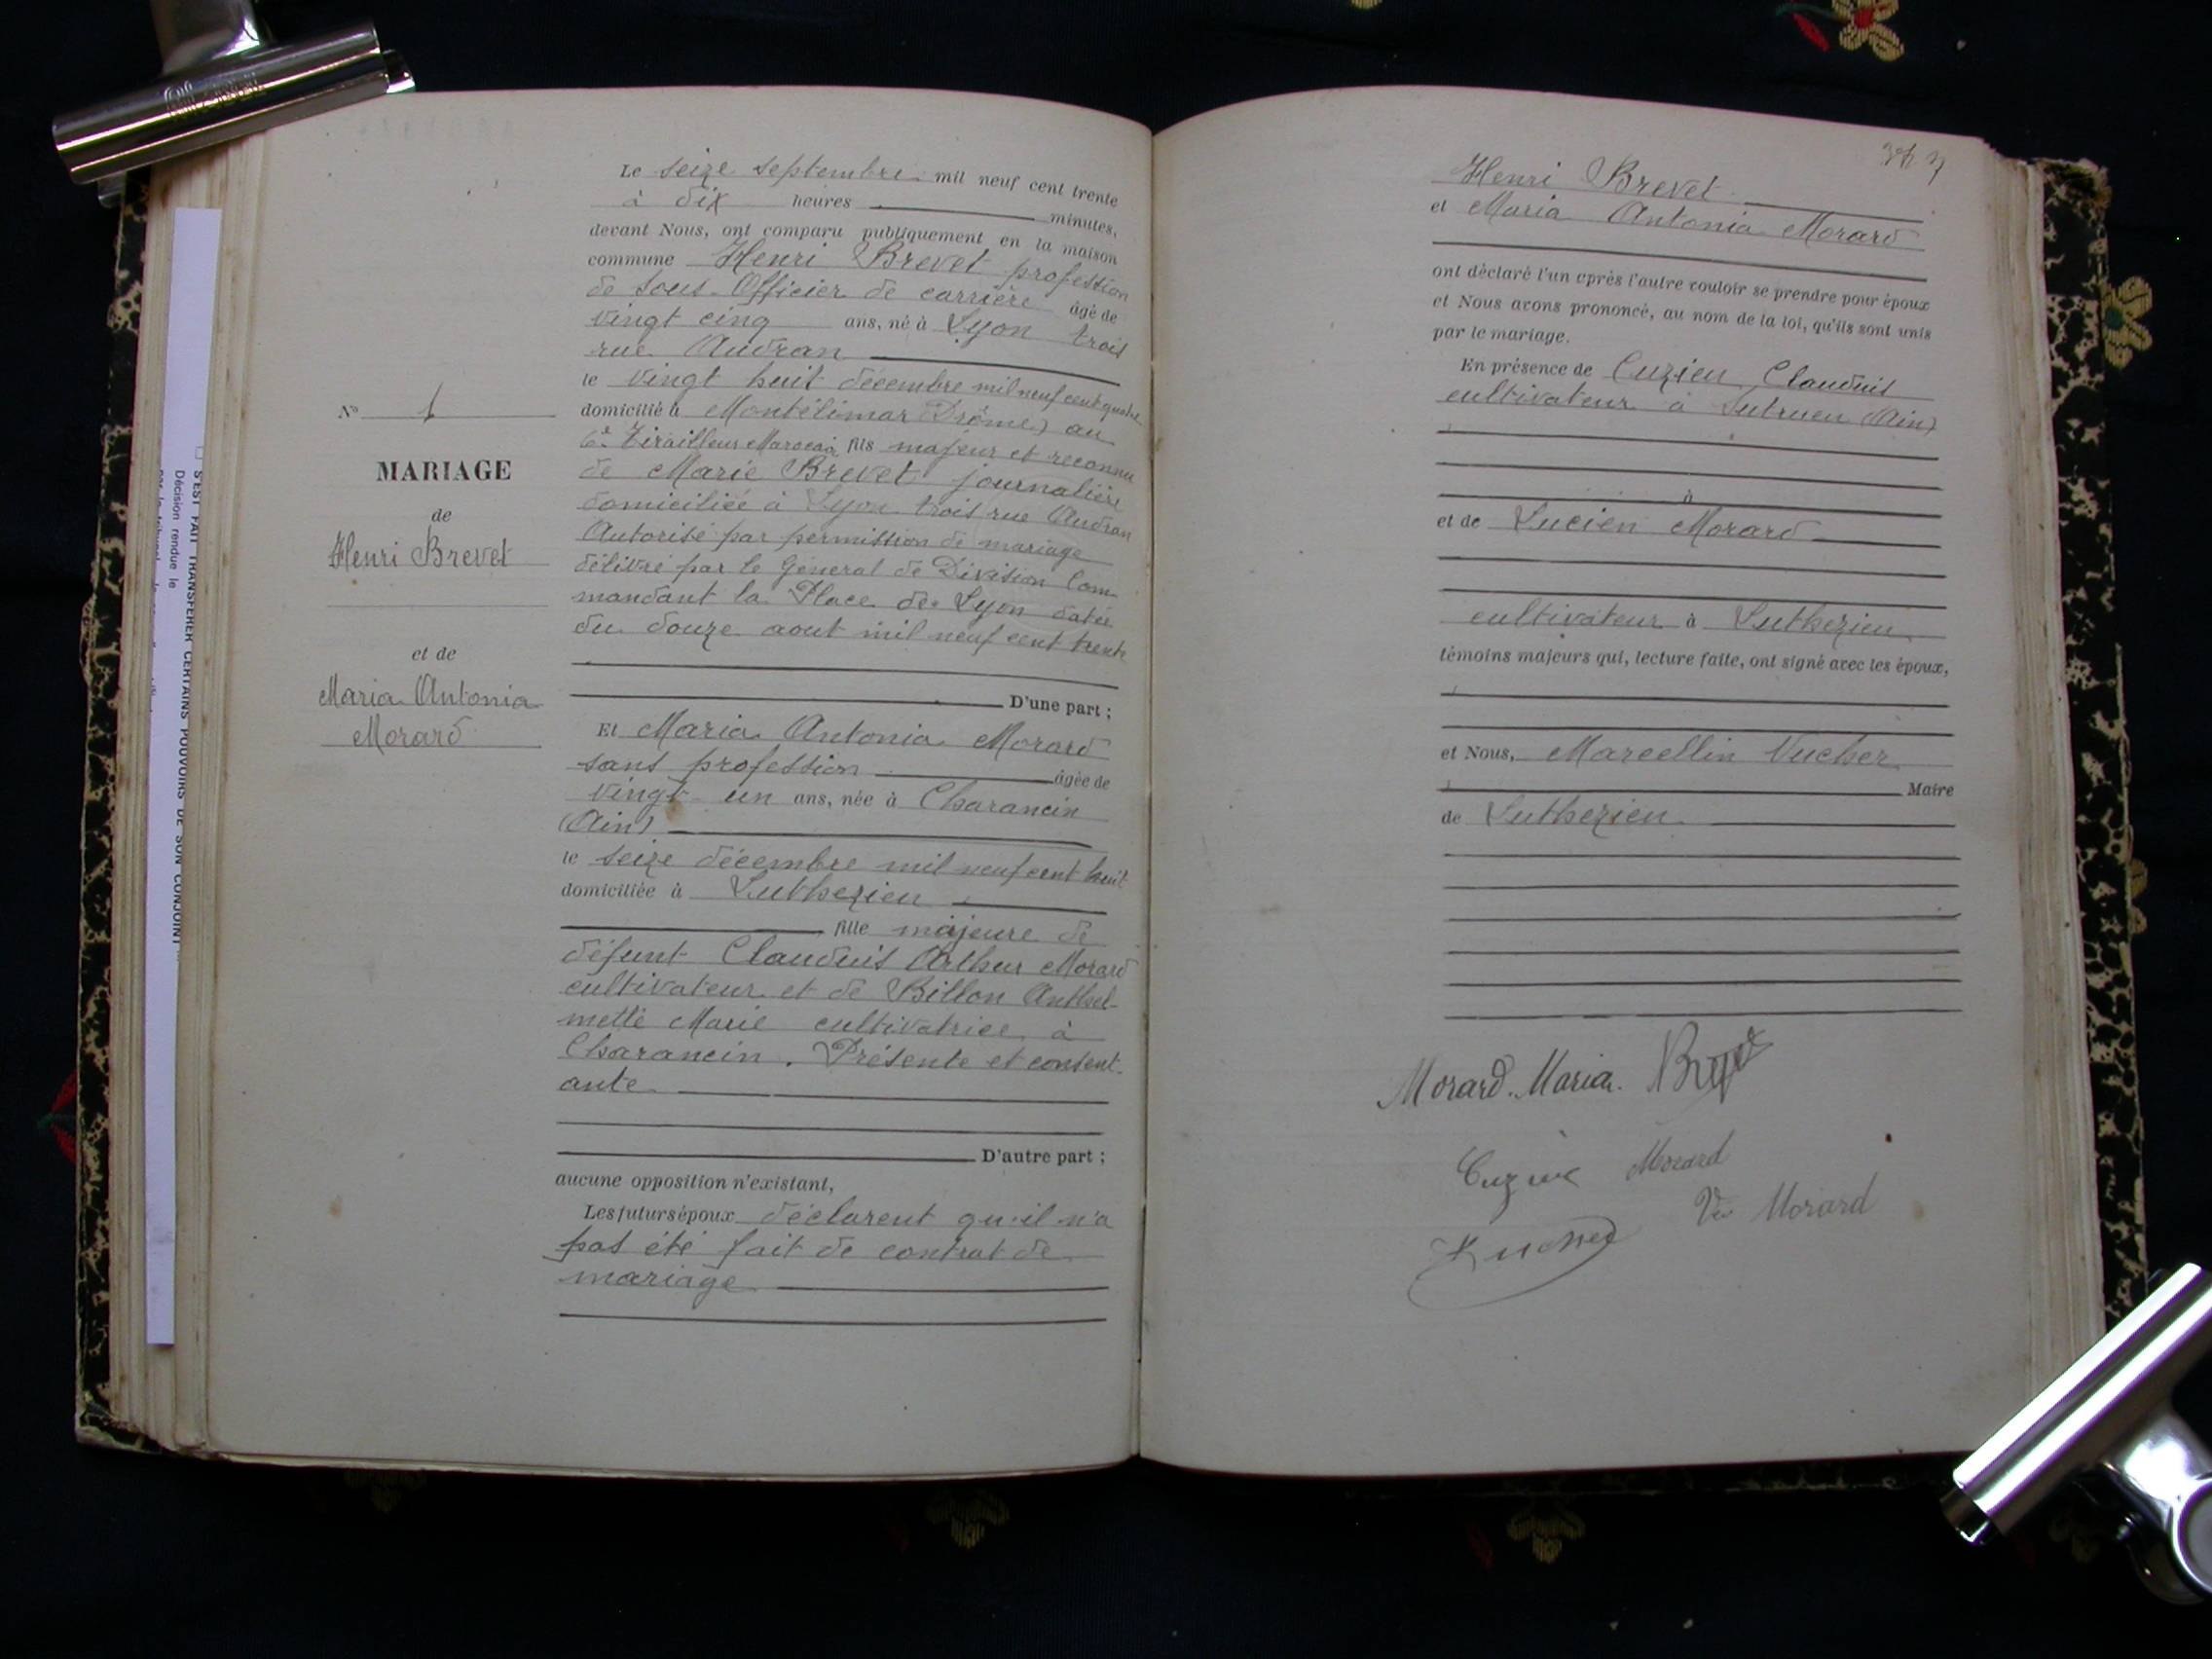 Le seize septembre mil neuf cent trente
à dix heures minutes,
devant Nous, ont comparu publiquement en la maison
commune Henri Brevet profession
de Sous-Officier de carrière âgé de
vingt cinq ans, né à Lyon trois
rue Audran
le vingt huit décembre mil neuf cent quatre
domicilié à Montélimar (Drôme) au
6e Tirailleurs Marocain fils majeur et reconnu
de Marie Brevet journalière
domiciliée à Lyon trois rue Audran
Autorisé par permission de mariage
délivré par le Général de Division Com-
mandant la Place de Lyon datée
du douze aout mil neuf cent trente
D'une part ;
Et Maria Antonia Morard
sans profession âgée de
vingt-un ans, née à Charancin
(Ain)
le seize décembre mil neuf cent huit
domiciliée à Suthezieu
fille majeure de
défunt Claudius Arthur Morard
cultivateur et de Billon Anthel-
mette Marie cultivatrice à
Charancin. Présente et consent-
ante
D'autre part ;
aucune opposition n'existant,
Les futurs époux déclarent qu'il n'a
pas été fait de contrat de
mariage
No 1
MARIAGE
de
Henri Brevet
et de
Maria Antonia
Morard
S'EST FAIT TRANSFÉRER CERTAINS POUVOIRS DE SON CONJOINT
Décision rendue le
Henri Brevet
et Maria Antonia Morard
ont déclaré l'un après l'autre vouloir se prendre pour époux
et Nous avons prononcé, au nom de la loi, qu'ils sont unis
par le mariage.
En présence de Cuzieu Claudius
cultivateur à Sutrieu (Ain)
à
et de Lucien Morard
cultivateur à Suthezieu
témoins majeurs qui, lecture faite, ont signé avec les époux,
et Nous, Marcellin Vucher
Maire
de Suthezieu
Morard Maria Brevet
Morard
Ve Morard